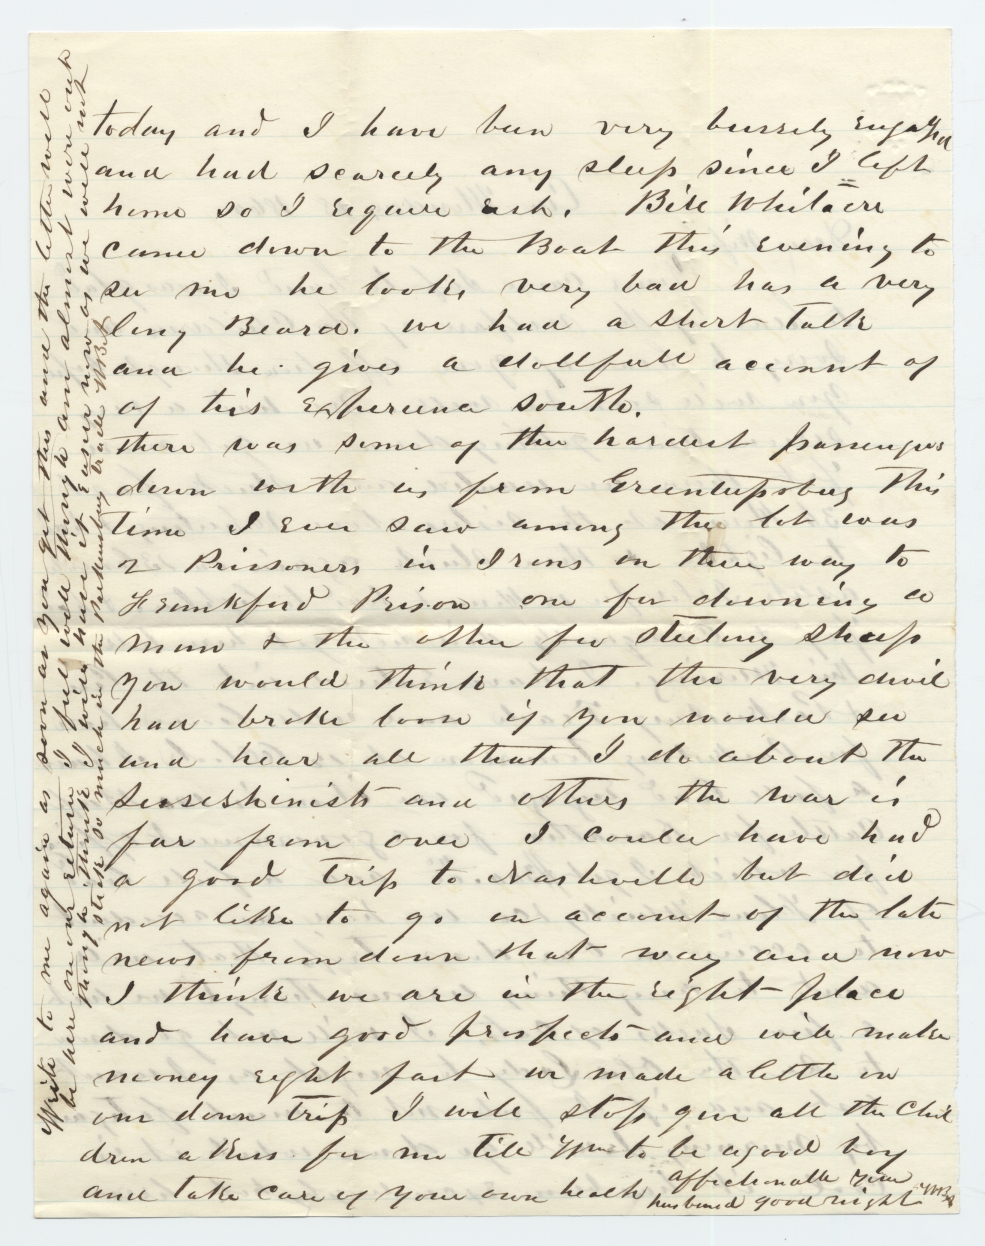 today and I have been very bussely engaged
and had scarcely any sleep since I left
home so I require rest. Bill Whitacre
came down to the Boat this evening to
see me he looks very bad has a very
long Beard. we had a short talk
and he gives a dollfull account of
of his Experience south.
there was some of the hardest passengers
down with us from Greenupsburg this
time I Ever saw among the lot was
2 Prissoners in Irons on their way to
Frankford Prison one for downing a
man & the other for steeling sheep
you would think that the very devil
had broke loose if you would see
and hear all that I do about the
Sesseshinists and others the war is
far from over I could have had
a good trip to Nashville but did
not like to go on account of the late
news from down that way and now
I think we are in the right place
and have good prospects and will make
money right fast we made a little on
our down trip I will stop give all the chil
dren a kiss for me tell Wm to be a good boy
and take care of your own health affectionatle your
husband good night
Write to me again as soon as you get this and the letter will
be here on our return I feel well thoug h am almost wore out
thoug h think I will have it Easier now as we will not
stick so much in the Parkersburg trade